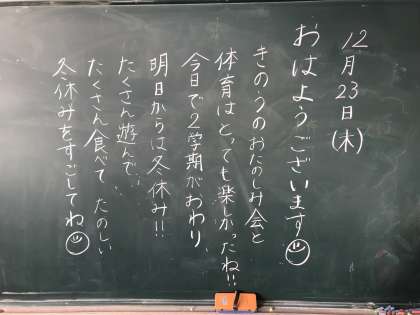 12月23日(木)
おはようございます
きのうのおたのしみ会と
体育はとっても楽しかったね!!
今日で2学期がおわり、
明日からは冬休み!!
たくさん遊んで、
たくさん食べて たのしい
冬休みをすごしてね